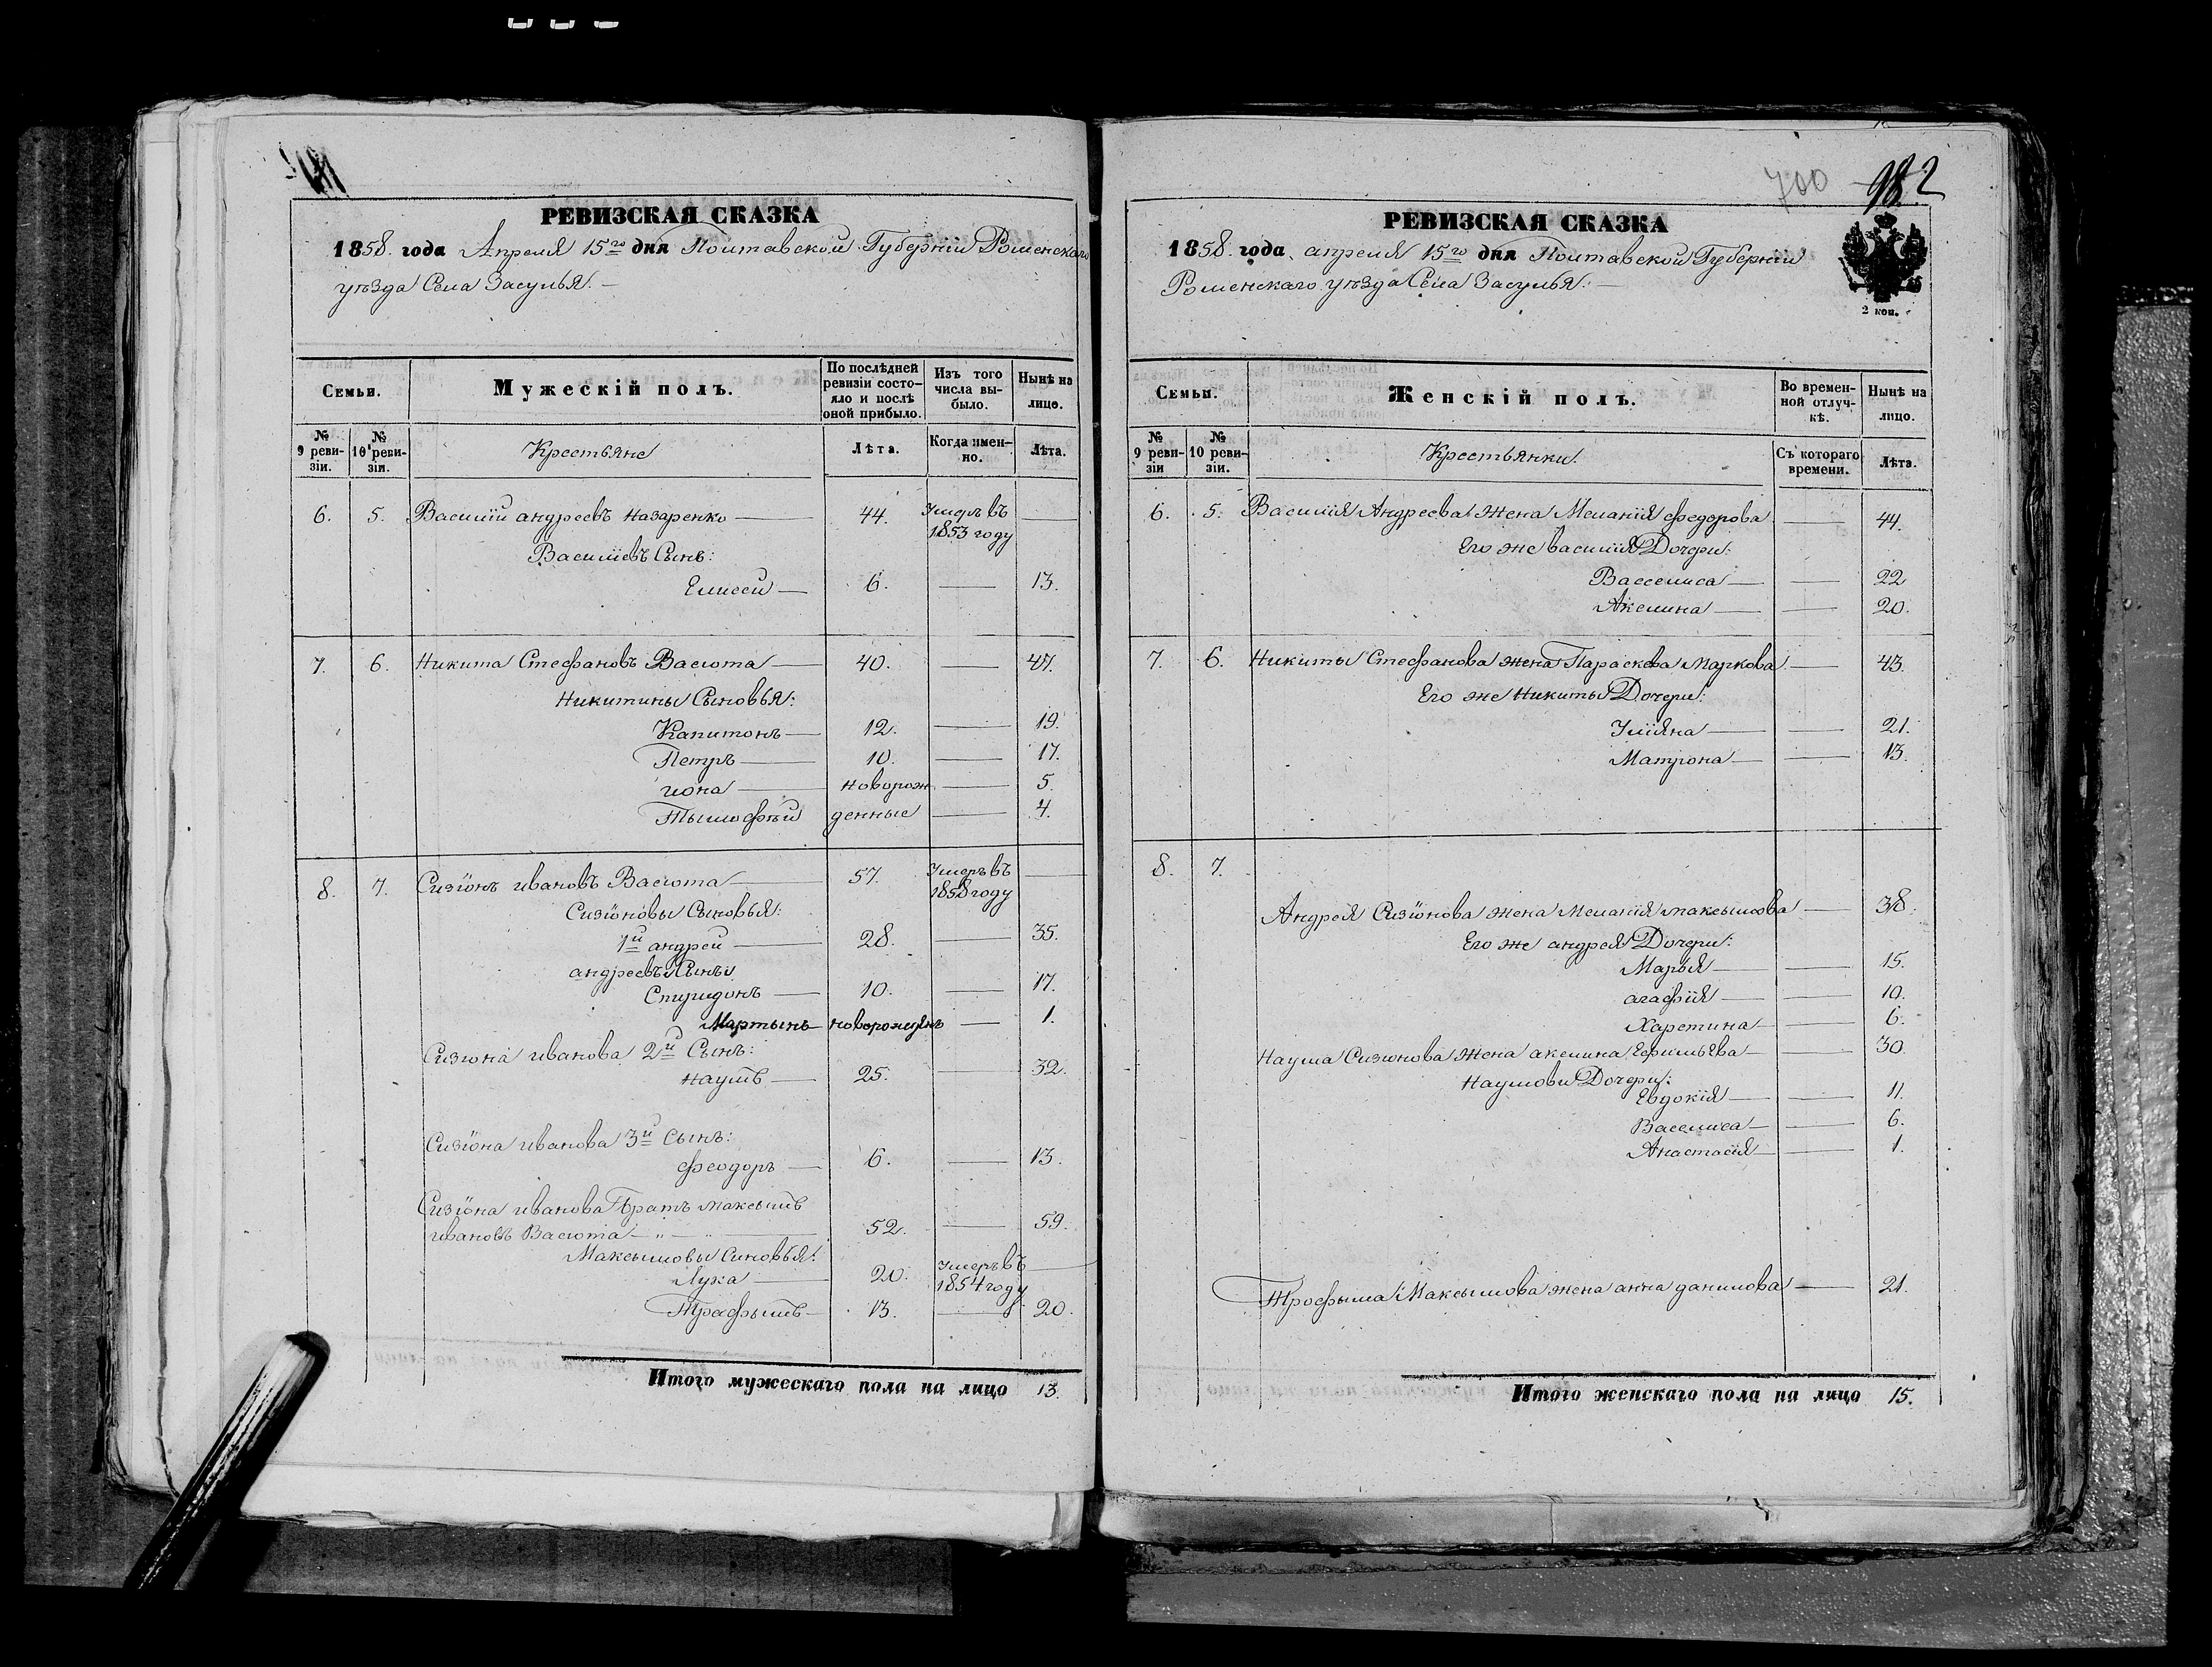 РЕВИЗСКАЯ СКАЗКА
1858. года Апреля 15го дня Полтавской Губерніи Роменскаго
уѣзда Села Засулья.
Семьи.
Мужескій полъ.
По послѣдней ревизіи состояло и послѣ оной прибыло.
Изъ того числа выбыло.
Нынѣ на лицо.
№ 9 ревизіи.
№ 10 ревизіи.
Крестьяне
Лѣта.
Когда именно.
Лѣта.
6. 5. Василій андреевъ Назаренко — 44. Умеръ въ 1853 году —
Василіевъ Сынъ:
Елисей — 6. — 13.
7. 6. Никита Стефановъ Васюта — 40. — 47.
Никитины Сыновья:
Капитонъ — 12. — 19.
Петръ — 10. — 17.
иона — новорож — 5.
Тымофѣй денные — 4.
8. 7. Сизіонъ ивановъ Васюта — 57. Умеръ въ 1858 году —
Сизіоновы Сыновья:
1й андрей — 28. — 35.
андреевы Сыны
Спиридонъ — 10. — 17.
Мартынъ — новорожденъ — 1.
Сизіона иванова 2й Сынъ:
Наумъ — 25. — 32.
Сизіона иванова 3й Сынъ:
Феодоръ — 6. — 13.
Сизіона иванова Братъ максымъ
ивановъ Васюта — " — " — 52. — 59.
Максымовы Сыновья:
Лука — 20. Умеръ въ 1854 году —
Трофымъ — 13. — 20.
Итого мужескаго пола на лицо 13.
700 982
РЕВИЗСКАЯ СКАЗКА
1858. года апреля 15го дня Полтавской Губерніи
Роменскаго уѣзда Села Засулья. —
2 коп.
Семьи.
Женскій полъ.
Во временной отлучкѣ.
Нынѣ на лицо.
№ 9 ревизіи
№ 10 ревизіи.
Крестьянки.
Съ котораго времени.
Лѣта.
6. 5. Василія Андреева Жена Меланія федорова — 44.
Его же василія Дочери:
Васселиса — — 22
Акелина — — 20.
7. 6. Никиты Стефанова жена Параскева Маркова — 43.
Его же Никиты Дочери:
Уліяна — — 21.
Матрона — — 13.
8. 7.
Андрея Сизіонова жена Меланія максымова — 38.
Его же андрея Дочери:
Марья — — 15.
агафія — — 10.
Харетина — — 6.
Наума Сизіонова Жена акелина Ефимьева — — 30.
Наумови Дочери:
Евдокія — — 11.
Васелиса — — 6.
Анастасія — — 1.
Трофыма Максымова жена анна данилова — 21.
Итого женскаго пола на лицо 15.